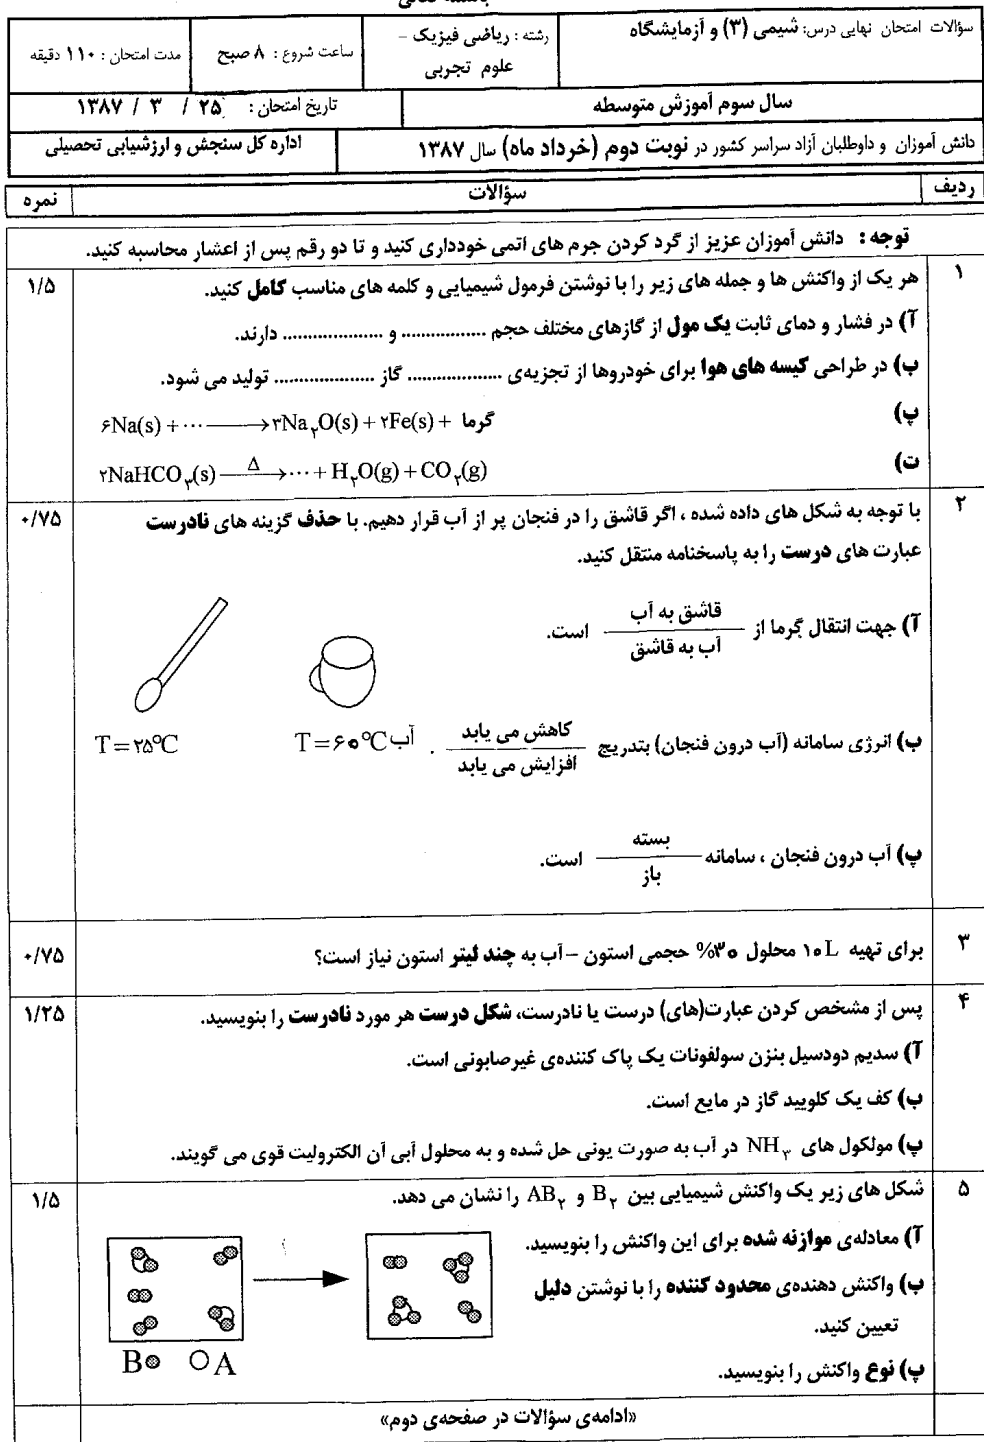 باسمه تعالی
سؤالات امتحان نهایی درس: شیمی (۳) و آزمایشگاه
رشته : ریاضی فیزیک – علوم تجربی
ساعت شروع : ۸ صبح
مدت امتحان : ۱۱۰ دقیقه
سال سوم آموزش متوسطه
تاریخ امتحان : ۲۵ / ۳ / ۱۳۸۷
دانش آموزان و داوطلبان آزاد سراسر کشور در نوبت دوم (خرداد ماه) سال ۱۳۸۷
اداره کل سنجش و ارزشیابی تحصیلی
ردیف سؤالات نمره
توجه : دانش آموزان عزیز از گرد کردن جرم های اتمی خودداری کنید و تا دو رقم پس از اعشار محاسبه کنید.
۱ هر یک از واکنش ها و جمله های زیر را با نوشتن فرمول شیمیایی و کلمه های مناسب کامل کنید. ۱/۵
آ) در فشار و دمای ثابت یک مول از گازهای مختلف حجم ................. و .................... دارند.
ب) در طراحی کیسه های هوا برای خودروها از تجزیه‌ی ................... گاز .................... تولید می شود.
پ) ۶Na(s) + ··· ⟶ ۳Na₂O(s) + ۲Fe(s) + گرما
ت) ۲NaHCO₃(s) —Δ→ ··· + H₂O(g) + CO₂(g)
۲ با توجه به شکل های داده شده ، اگر قاشق را در فنجان پر از آب قرار دهیم. با حذف گزینه های نادرست ۰/۷۵
عبارت های درست را به پاسخنامه منتقل کنید.
آ) جهت انتقال گرما از قاشق به آب / آب به قاشق است.
T = ۲۵°C
T = ۶۰°C آب
ب) انرژی سامانه (آب درون فنجان) بتدریج کاهش می یابد / افزایش می یابد .
پ) آب درون فنجان ، سامانه بسته / باز است.
۳ برای تهیه ۱۰L محلول ۳۰% حجمی استون – آب به چند لیتر استون نیاز است؟ ۰/۷۵
۴ پس از مشخص کردن عبارت(های) درست یا نادرست، شکل درست هر مورد نادرست را بنویسید. ۱/۲۵
آ) سدیم دودسیل بنزن سولفونات یک پاک کننده‌ی غیرصابونی است.
ب) کف یک کلویید گاز در مایع است.
پ) مولکول های NH₃ در آب به صورت یونی حل شده و به محلول آبی آن الکترولیت قوی می گویند.
۵ شکل های زیر یک واکنش شیمیایی بین B₂ و AB₂ را نشان می دهد. ۱/۵
آ) معادله‌ی موازنه شده برای این واکنش را بنویسید.
ب) واکنش دهنده‌ی محدود کننده را با نوشتن دلیل
تعیین کنید.
پ) نوع واکنش را بنویسید.
B A
«ادامه‌ی سؤالات در صفحه‌ی دوم»